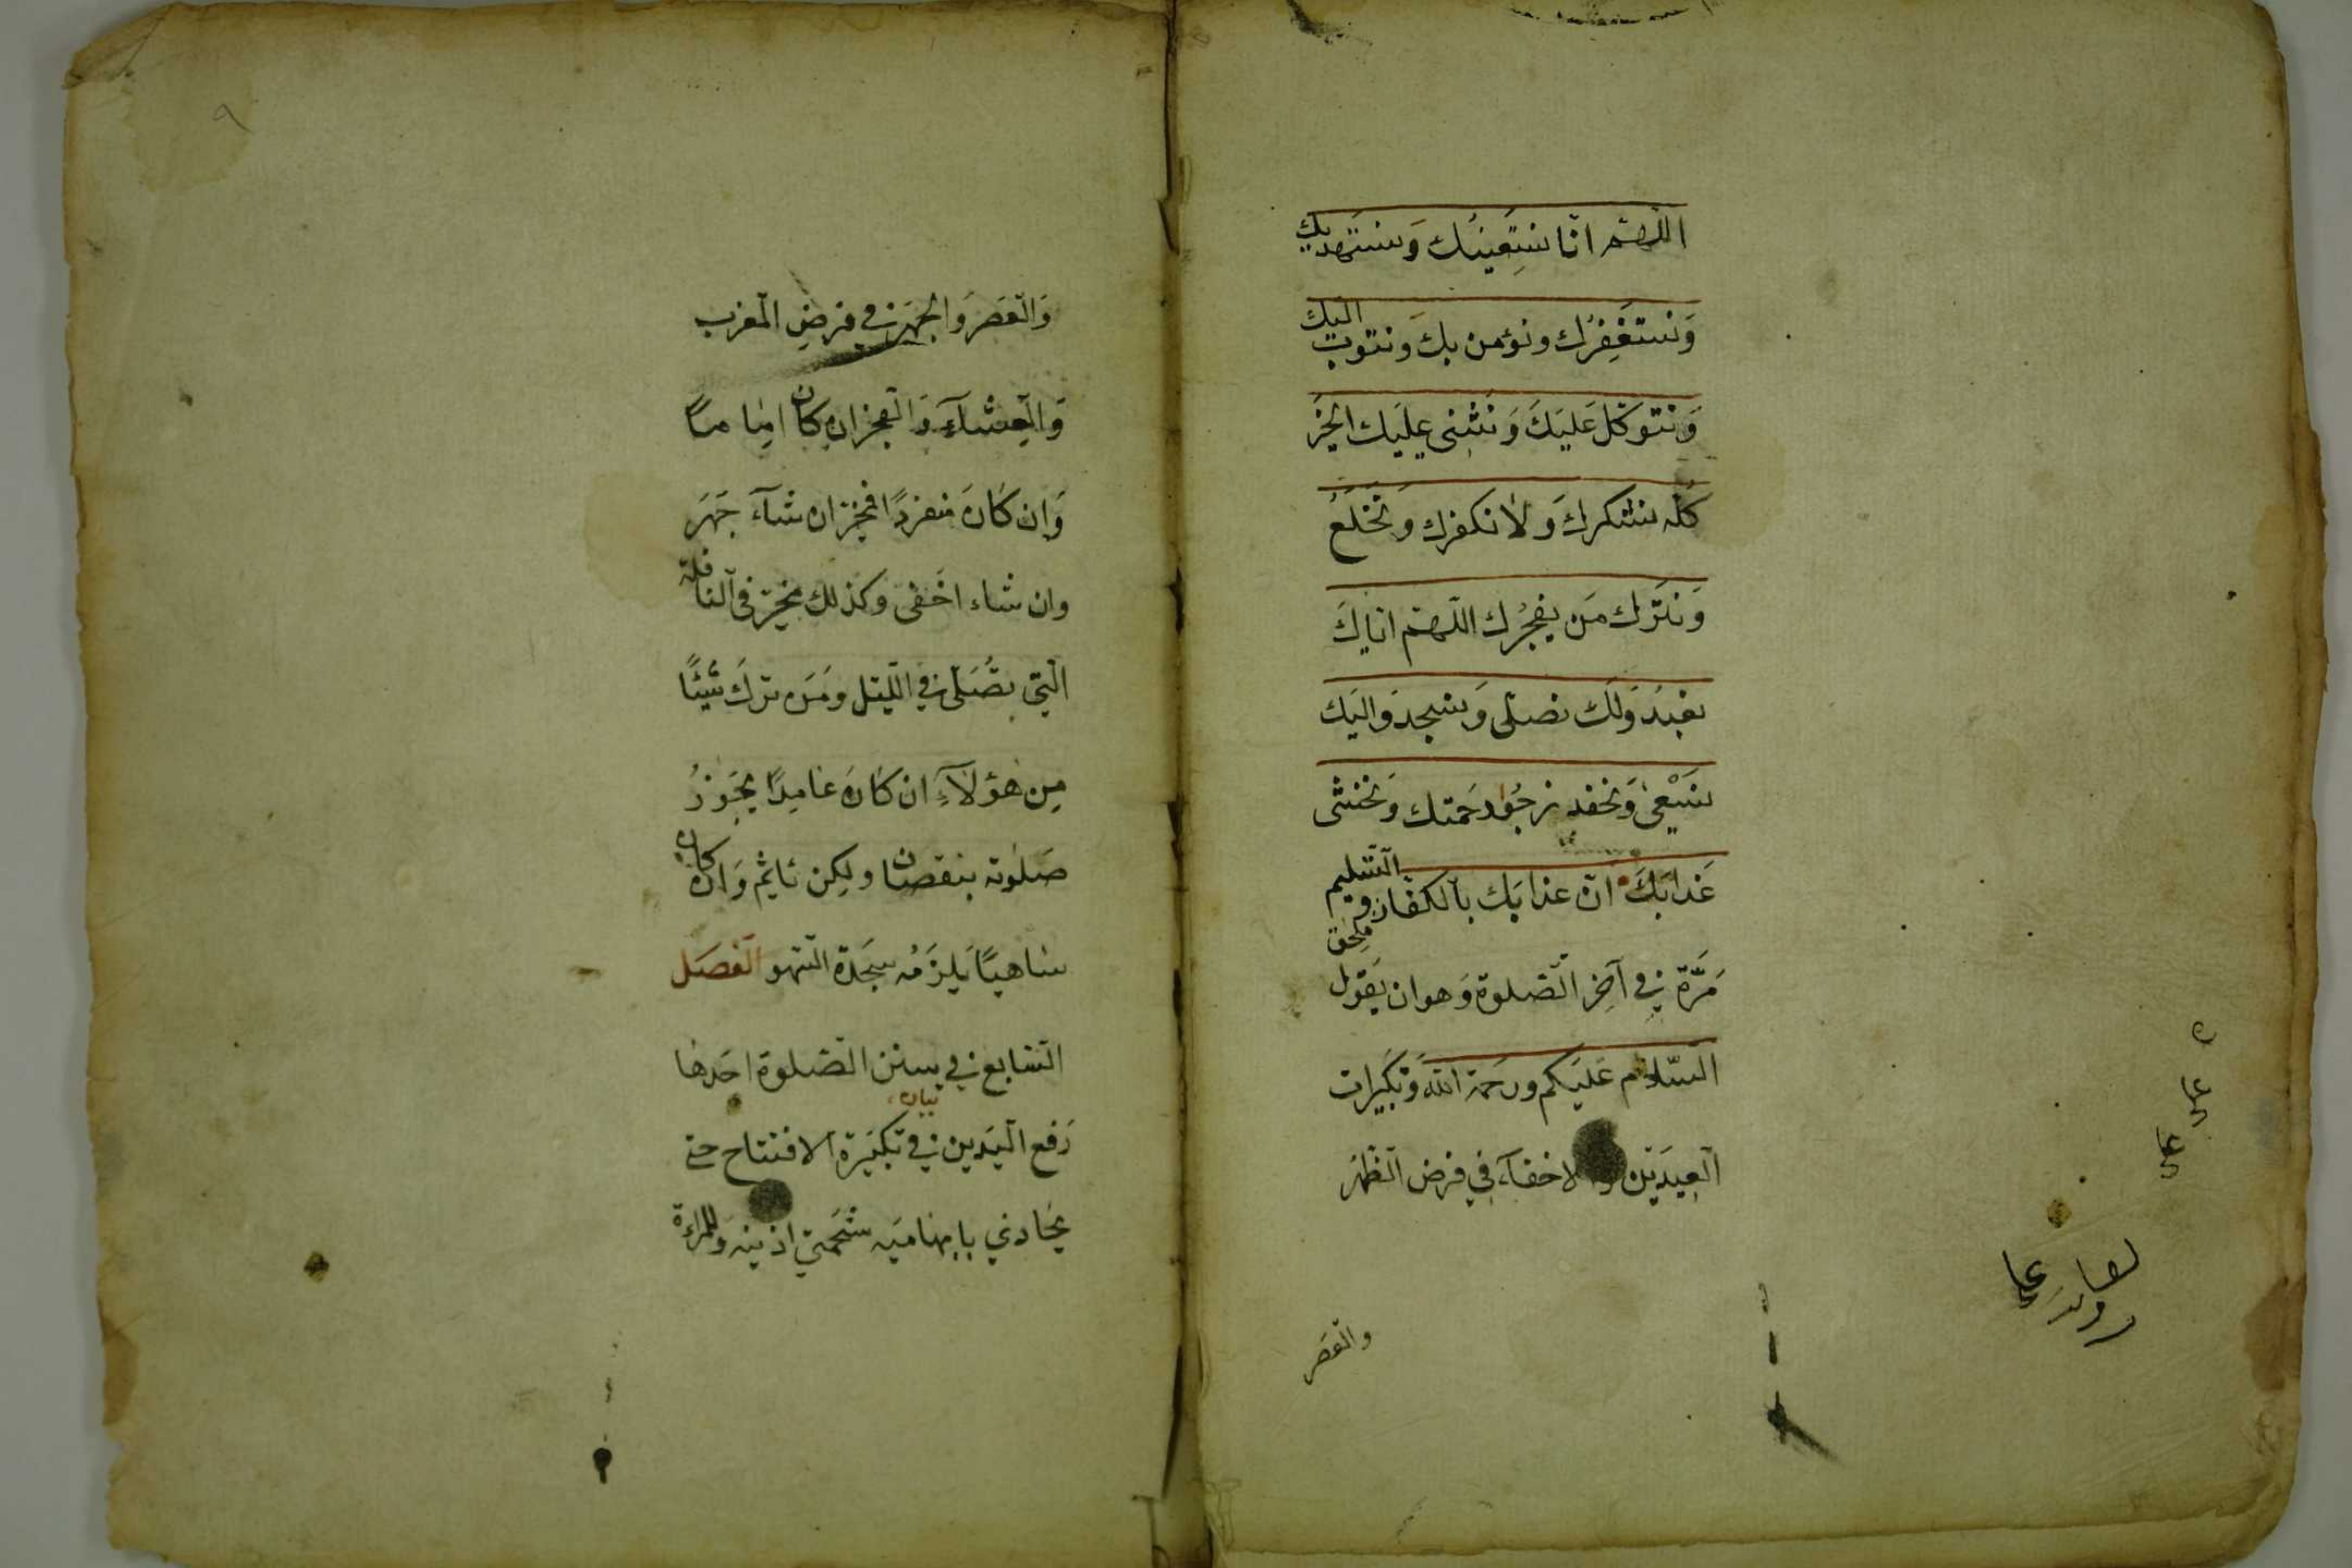 اللّهمّ انّا نستعينك وَنستهديك
وَنستغفرُك ونؤمن بك وَنتوب اليك
وَنتوكّل عَليَكَ وَنثنى عليَك الخيرَ
كلّه نشكرك وَلا نكفرك وَنخلَعُ
وَنتَرك مَن يفجُرك اللّهمّ ايّاكَ
نعبُدُ وَلَك نصلّى وَنسجدُ وَاليَك
نسَعْى وَنحفد نرجُوا رحمَتك وَنخشى
عَذابَكَ انّ عذابَك بالكفّار ملحق والتّسليم
مَرَّة في آخِر الصّلوة وَهو ان يَقول
السّلام عَليَكم ورحمَة اللّه وَتكبَيرات
العيدَين والاخفآء في فرض الظّهرَ
والعَصرَ
٩
وَالعَصرَ وَالجهرَ في فرضِ المغرب
وَالعِشآءِ وَالفجر ان كان امامًا
وَان كَانَ منفردًا فخيّر ان شآءَ جَهَرَ
وان شاء اخَفى وكذلك مخيّر في النافلة
الّتي تصُلّى في اللّيل ومَن ترَك شيئًا
مِن هؤلآءِ ان كَانَ عَامِدًا يَجوُزُ
صَلوته بنقصان ولكِن يأثم وَان كان
ساهيًا يَلزَمُه سَجَدة السّهو الفصَل
السّابع في سنن الصّلوة احَدهَا
بيان
رَفع اليَدين في تكبَيَرة الافتتاح حتى
يحَاذي بابهاميَه شحَمتي اذنيه وَللمراءة